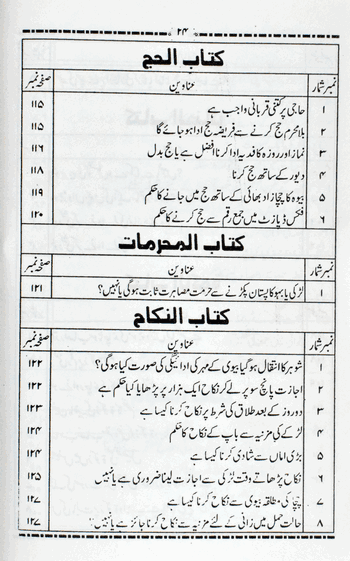 ۲۴
کتاب الحج
نمبر شمار عناوین صفحہ نمبر
۱ حاجی پر کتنی قربانی واجب ہے ۱۱۵
۲ بلا محرم حج کرنے سے فریضہ حج ادا ہو جائے گا ۱۱۵
۳ نماز اور روزہ کا فدیہ ادا کرنا افضل ہے یا حج بدل ۱۱۶
۴ دیور کے ساتھ حج کرنا ۱۱۸
۵ بیوہ کا چچا زاد بھائی کے ساتھ حج میں جانے کا حکم ۱۱۹
۶ فکس ڈپازٹ میں جمع رقم سے حج کرنے کا حکم ۱۲۰
کتاب المحرمات
نمبر شمار عناوین صفحہ نمبر
۱ لڑکی یا بہو کا پستان پکڑنے سے حرمت مصاہرت ثابت ہوگی یا نہیں؟ ۱۲۱
کتاب النکاح
نمبر شمار عناوین صفحہ نمبر
۱ شوہر کا انتقال ہو گیا بیوی کے مہر کی ادائیگی کی صورت کیا ہوگی؟ ۱۲۲
۲ اجازت پانچ سو پر لے کر نکاح ایک ہزار پر پڑھایا کیا حکم ہے ۱۲۲
۳ دو روز کے بعد طلاق کی شرط پر نکاح کرنا کیسا ہے ۱۲۳
۴ لڑکے کی مزنیہ سے باپ کے نکاح کا حکم ۱۲۴
۵ بڑی اماں سے شادی کرنا کیسا ہے ۱۲۴
۶ نکاح پڑھاتے وقت لڑکی سے اجازت لینا ضروری ہے یا نہیں ۱۲۵
۷ چچا کی مطلقہ بیوی سے نکاح کرنا کیسا ہے ۱۲۷
۸ حالت حمل میں زانی کے لئے مزنیہ سے نکاح کرنا جائز ہے یا نہیں؟ ۱۲۷